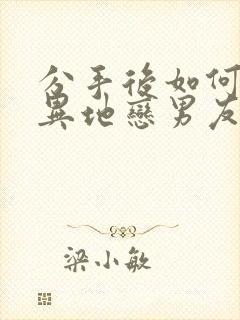 分手後如何
異地戀男友
梁小敏